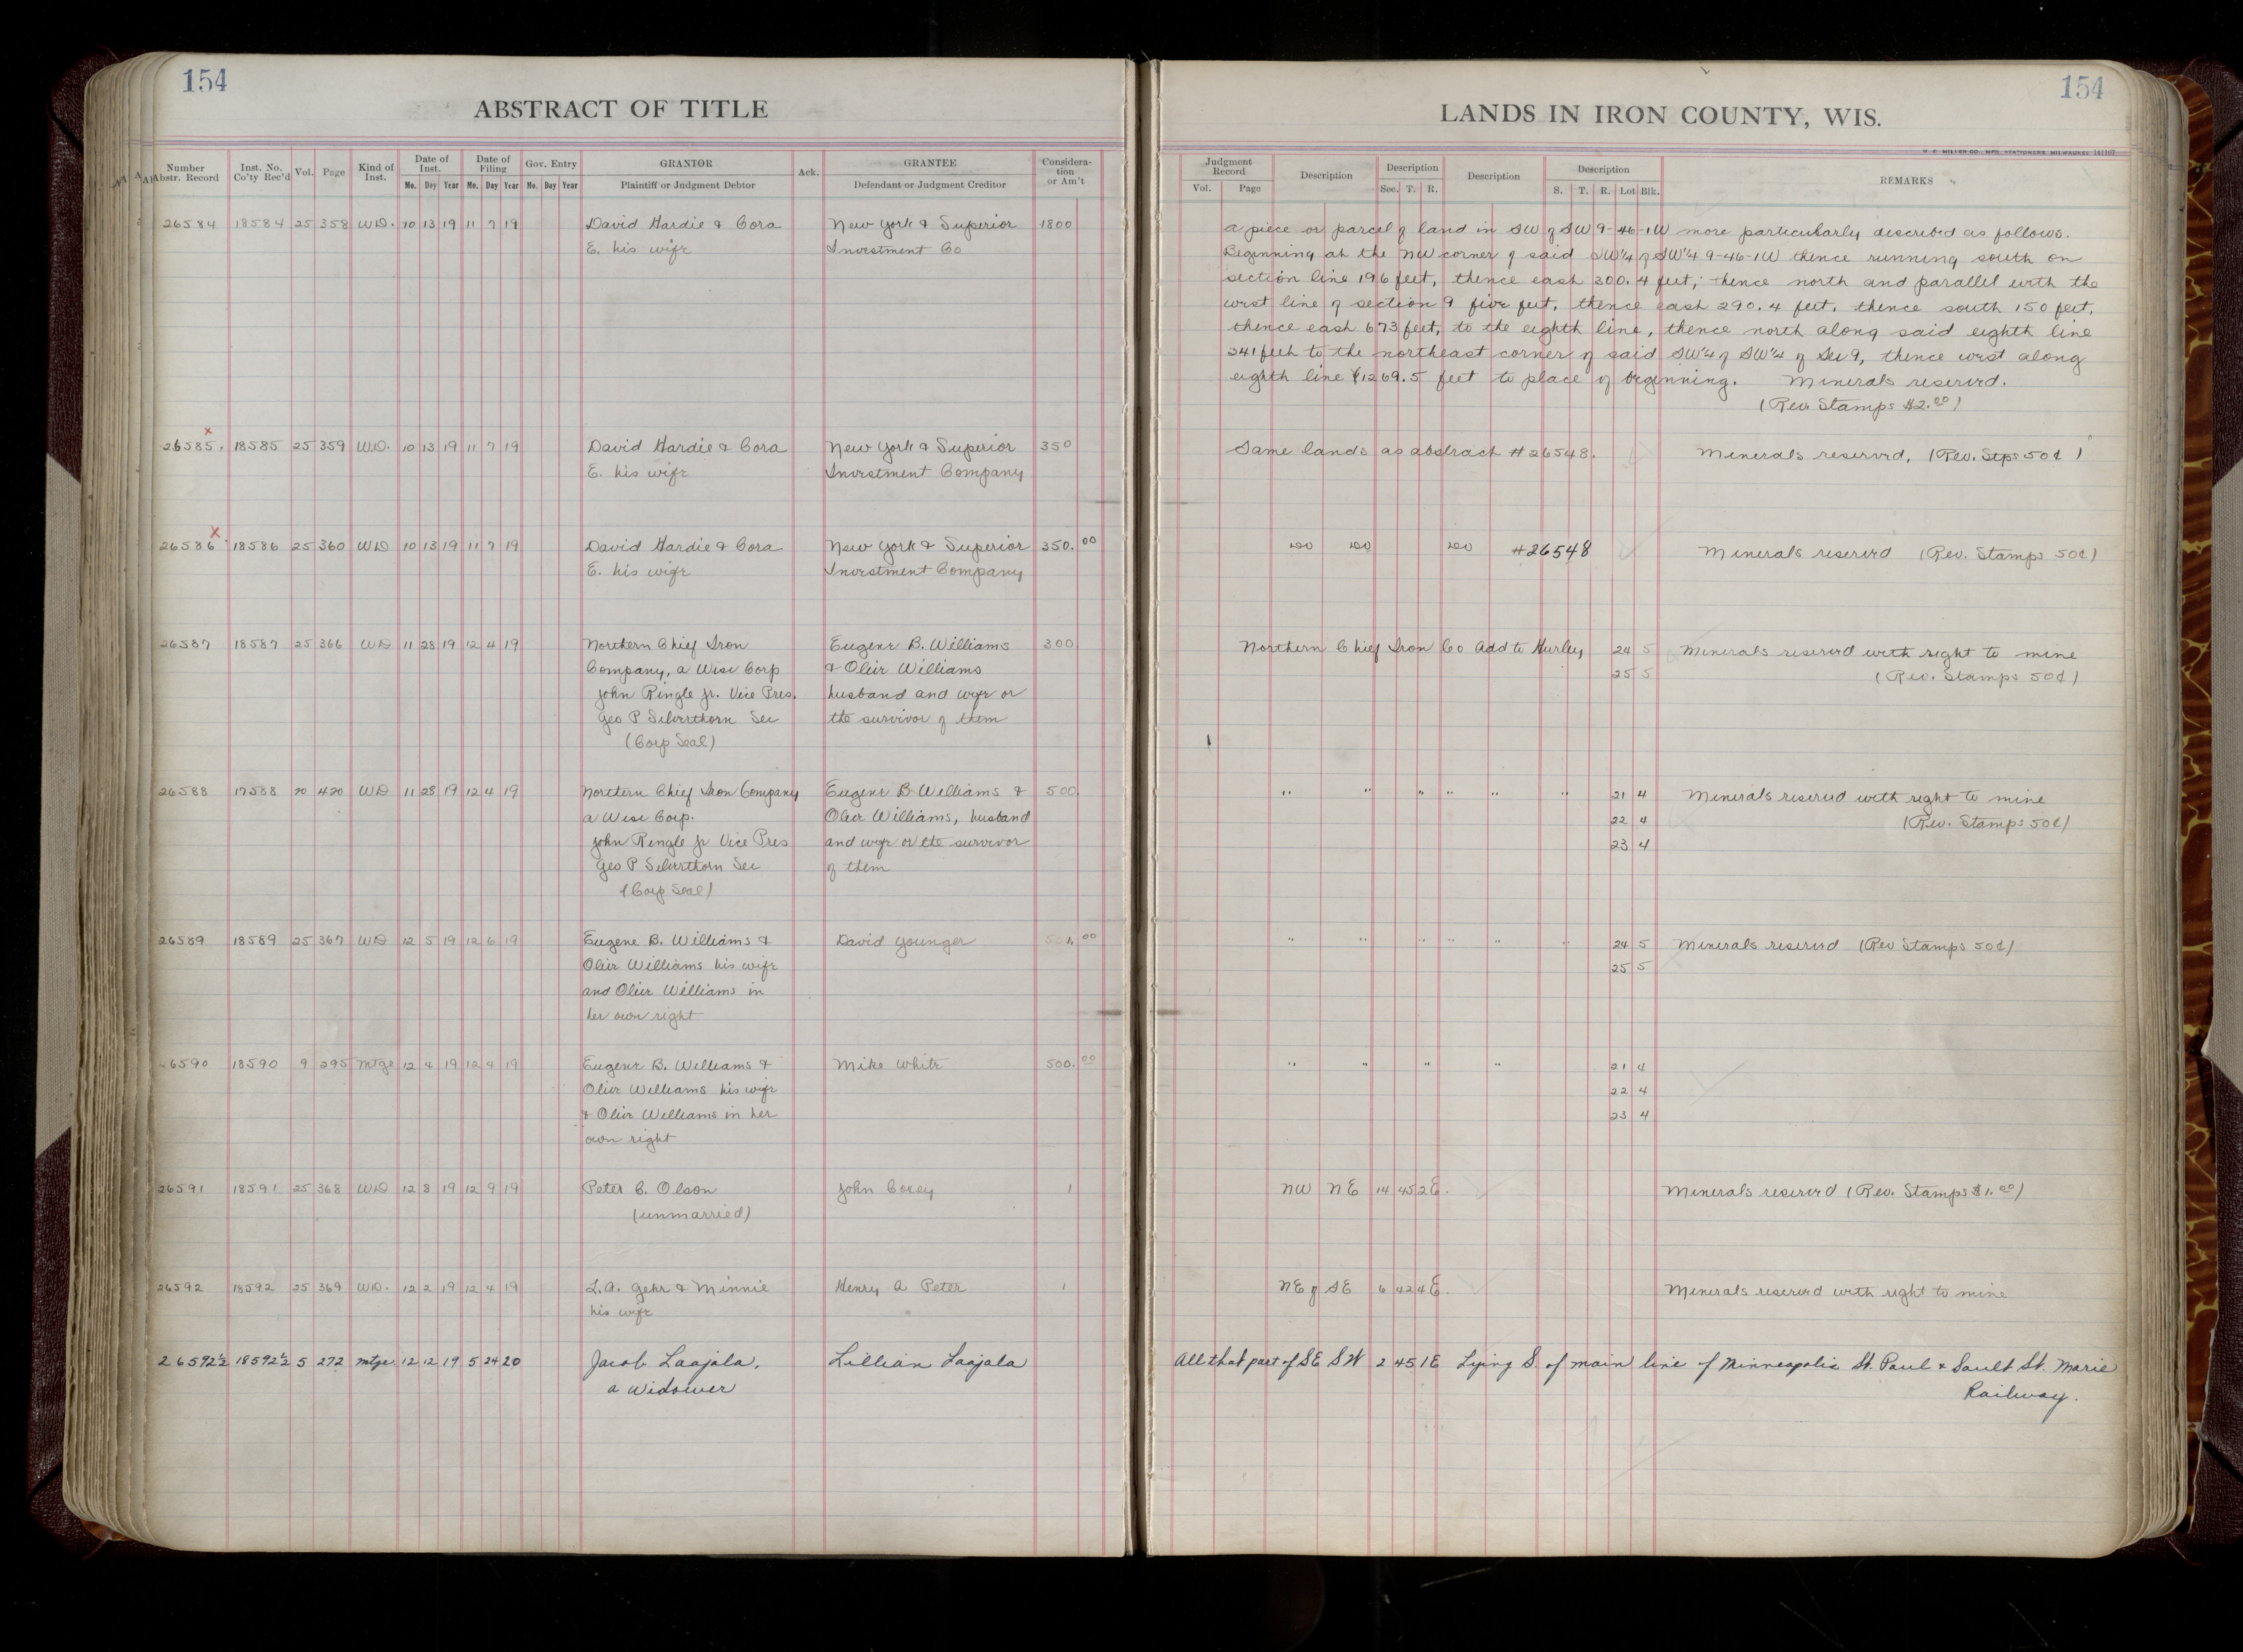 154
ABSTRACT OF TITLE
Number Abstr. Record
Inst. No. Co'ty Rec'd
Vol.
Page
Kind of Inst.
Date of Inst.
Mo. Day Year
Date of Filing
Mo. Day Year
Gov. Entry
Mo. Day Year
GRANTOR
Plaintiff or Judgment Debtor
Ack.
GRANTEE
Defendant or Judgment Creditor
Consideration or Am't
26584 18584 25 358 WD. 10 13 19 11 7 19 David Hardie & Cora New York & Superior 1800
E. his wife Investment Co
x
26585. 18585 25 359 WD. 10 13 19 11 7 19 David Hardie & Cora New York & Superior 350
E. his wife Investment Company
x
26586 18586 25 360 WD 10 13 19 11 7 19 David Hardie & Cora New York & Superior 350.00
E. his wife Investment Company
26587 18587 25 366 WD 11 28 19 12 4 19 Northern Chief Iron Eugene B. Williams 300
Company, a Wisc Corp & Olive Williams
John Ringle Jr. Vice Pres. husband and wife or
Geo P Silverthorn Sec the survivor of them
(Corp Seal)
26588 17588 20 420 WD 11 28 19 12 4 19 Northern Chief Iron Company Eugene B Williams & 500.
a Wisc Corp. Olive Williams, husband
John Ringle Jr Vice Pres and wife or the survivor
Geo P Silverthorn Sec of them
(Corp Seal)
26589 18589 25 367 WD 12 5 19 12 6 19 Eugene B. Williams & David Younger 00
Olive Williams his wife
and Olive Williams in
her own right
6590 18590 9 295 Mtge 12 4 19 12 9 19 Eugene B. Williams & Mike White 500.00
Olive Williams his wife
& Olive Williams in her
own right
26591 18591 25 368 WD 12 8 19 12 9 19 Peter C. Olson John Corey 1
(unmarried)
26592 18592 25 369 WD. 12 2 19 12 4 19 L.A. Gehr & Minnie Henry A Peter 1
his wife
26592½ 18592½ 5 272 mtge 12 12 19 5 24 20 Jacob Laajala, Lillian Laajala
a Widower
154
LANDS IN IRON COUNTY, WIS.
H. C. MILLER CO., MFG. STATIONERS MILWAUKEE
Judgment Record
Vol. Page
Description
Description
Sec. T. R.
Description
Description
S. T. R. Lot Blk.
REMARKS
a piece or parcel of land in SW of SW 9-46-1W more particularly described as follows.
Beginning at the NW corner of said SW¼ of SW¼ 9-46-1W thence running south on
section line 196 feet, thence east 300.4 feet, thence north and parallel with the
west line of section 9 five feet, thence east 290.4 feet, thence south 150 feet,
thence east 673 feet, to the eighth line, thence north along said eighth line
341 feet to the northeast corner of said SW¼ of SW¼ of Sec 9, thence west along
eighth line 1269.5 feet to place of beginning. Minerals reserved.
(Rev. Stamps $2.00)
Same lands as abstract #26548. Minerals reserved, (Rev. Stps 50¢)
do do do #26548 Minerals reserved (Rev. Stamps 50¢)
Northern Chief Iron Co Add to Hurley 24 5 Minerals reserved with right to mine
25 5 (Rev. Stamps 50¢)
" " " " " " 21 4 Minerals reserved with right to mine
22 4 (Rev. Stamps 50¢)
23 4
" " " " " " 24 5 Minerals reserved (Rev Stamps 50¢)
25 5
" " " " 21 4
22 4
23 4
NW NE 14 45 2E. Minerals reserved (Rev. Stamps $1.00)
NE of SE 6 42 4E. Minerals reserved with right to mine
All that part of SE SW 2 45 1E Lying S. of main line of Minneapolis St. Paul & Sault St. Marie
Railway.